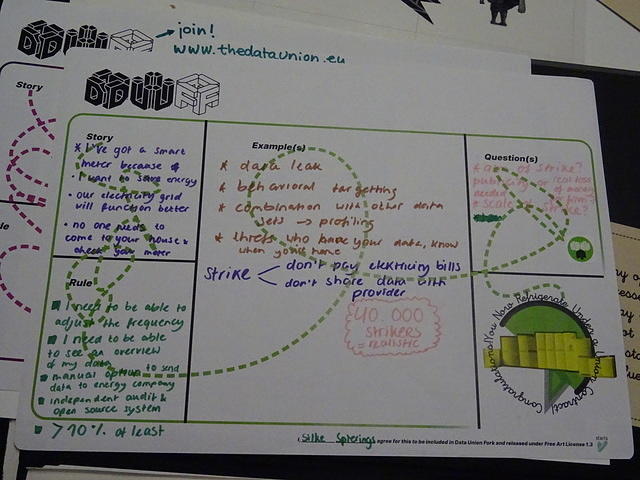 join!
www.thedataunion.eu
Story
Story
* I've got a smart
meter because of
• I want to save energy
• our electricity grid
will function better
• no one needs to
come to your house &
check your meter
Rule
I need to be able to
adjust the frequency
I need to be able
to see an overview
of my data
manual option to send
data to energy company
independent audit &
open source system
>70% at least
Example(s)
* data leak
* behavioral targetting
* combination with other data
sets → profiling
* who have your data, know
when you're home
Strike
don't pay elektricity bills
don't share data with
provider
40.000
strikers
= realistic
Question(s)
of strike?
publicity or real loss
of money
* scale of strike?
Congratulations! You Now Refrigerate Under a Union Contract!
agree for this to be included in Data Union Fork and released under Free Art License 1.3